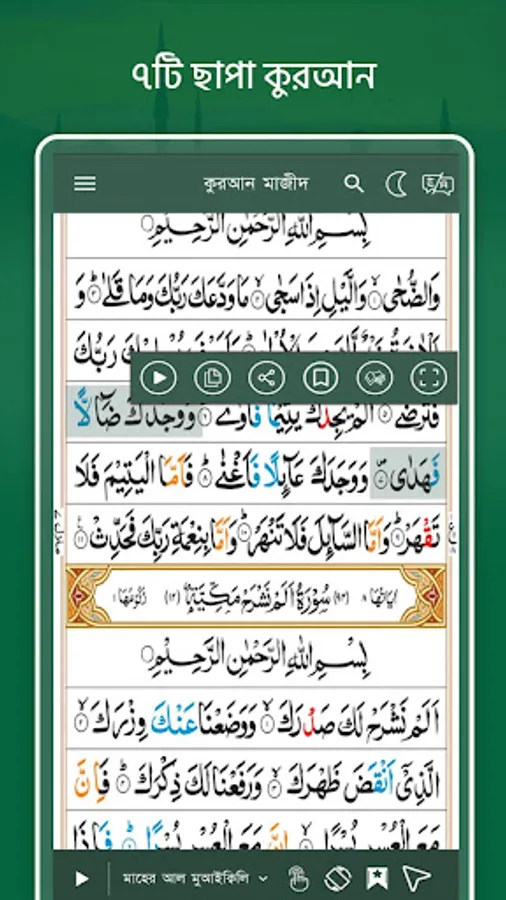 ৭টি ছাপা কুরআন
কুরআন মাজীদ
بِسْمِ اللّٰهِ الرَّحْمٰنِ الرَّحِيْمِ
وَالضُّحٰى ۙ۝۱ وَالَّيْلِ اِذَا سَجٰى ۙ۝۲ مَا وَدَّعَكَ رَبُّكَ وَمَا قَلٰى ؕ۝۳ وَ
رَبُّكَ
فَتَرْضٰى ؕ۝۵ اَلَمْ يَجِدْكَ يَتِيْمًا فَاٰوٰى ۪۝۶ وَوَجَدَكَ ضَآلًّا
فَهَدٰى ۪۝۷ وَوَجَدَكَ عَآئِلًا فَاَغْنٰى ؕ۝۸ فَاَمَّا الْيَتِيْمَ فَلَا
تَقْهَرْ ؕ۝۹ وَاَمَّا السَّآئِلَ فَلَا تَنْهَرْ ؕ۝۱۰ وَاَمَّا بِنِعْمَةِ رَبِّكَ فَحَدِّثْ ۝۱۱
اٰيَاتُهَا ۸ (۹۴) سُوْرَةُ اَلَمْ نَشْرَحْ مَكِّيَّةٌ (۱۲) رُكُوْعُهَا ۱
بِسْمِ اللّٰهِ الرَّحْمٰنِ الرَّحِيْمِ
اَلَمْ نَشْرَحْ لَكَ صَدْرَكَ ۙ۝۱ وَوَضَعْنَا عَنْكَ وِزْرَكَ ۙ۝۲
الَّذِيْٓ اَنْقَضَ ظَهْرَكَ ۙ۝۳ وَرَفَعْنَا لَكَ ذِكْرَكَ ؕ۝۴ فَاِنَّ
مَعَ الْعُسْرِ يُسْرًا ۙ۝۵ اِنَّ مَعَ الْعُسْرِ يُسْرًا ؕ۝۶ فَاِذَا
মাহের আল মুআইকিলি